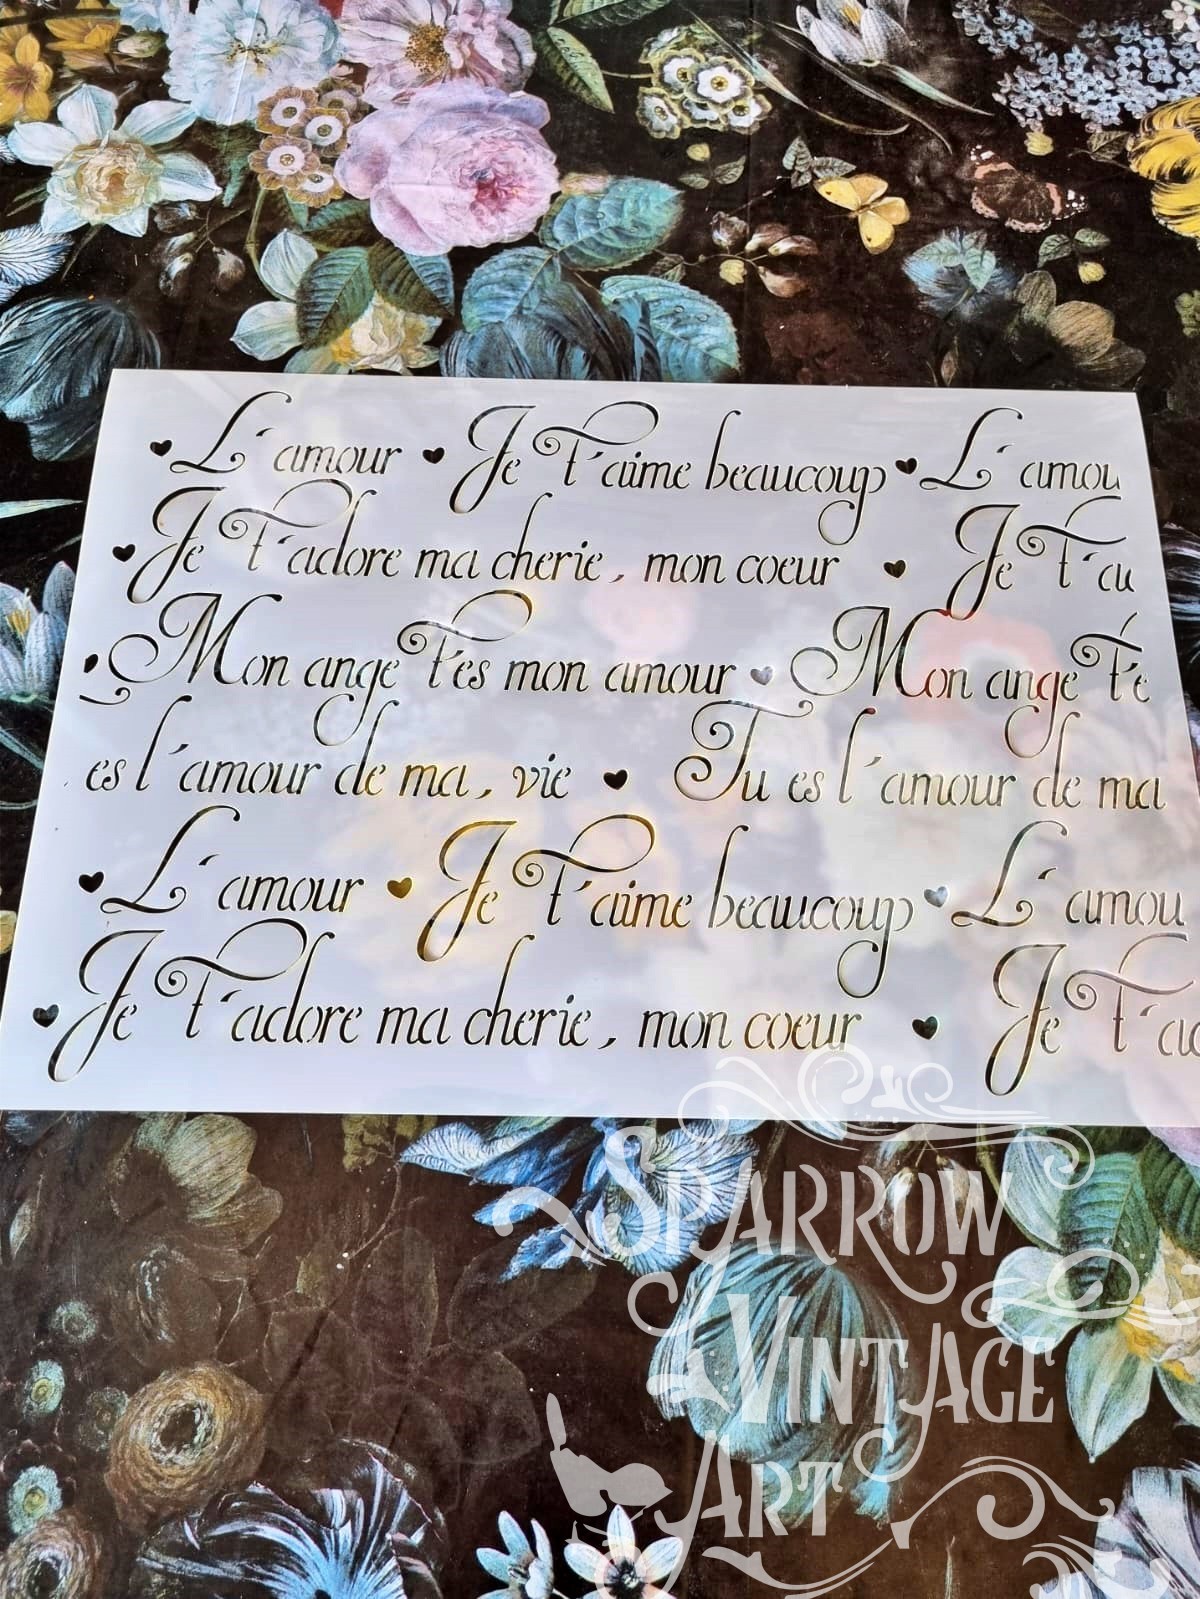 L'amour Je t'aime beaucoup L'amou
Je t'adore ma cherie, mon coeur Je t'a
Mon ange t'es mon amour Mon ange t'e
es l'amour de ma, vie Tu es l'amour de ma
L'amour Je t'aime beaucoup L'amou
Je t'adore ma cherie, mon coeur Je t'ad
Sparrow
Vintage
Art